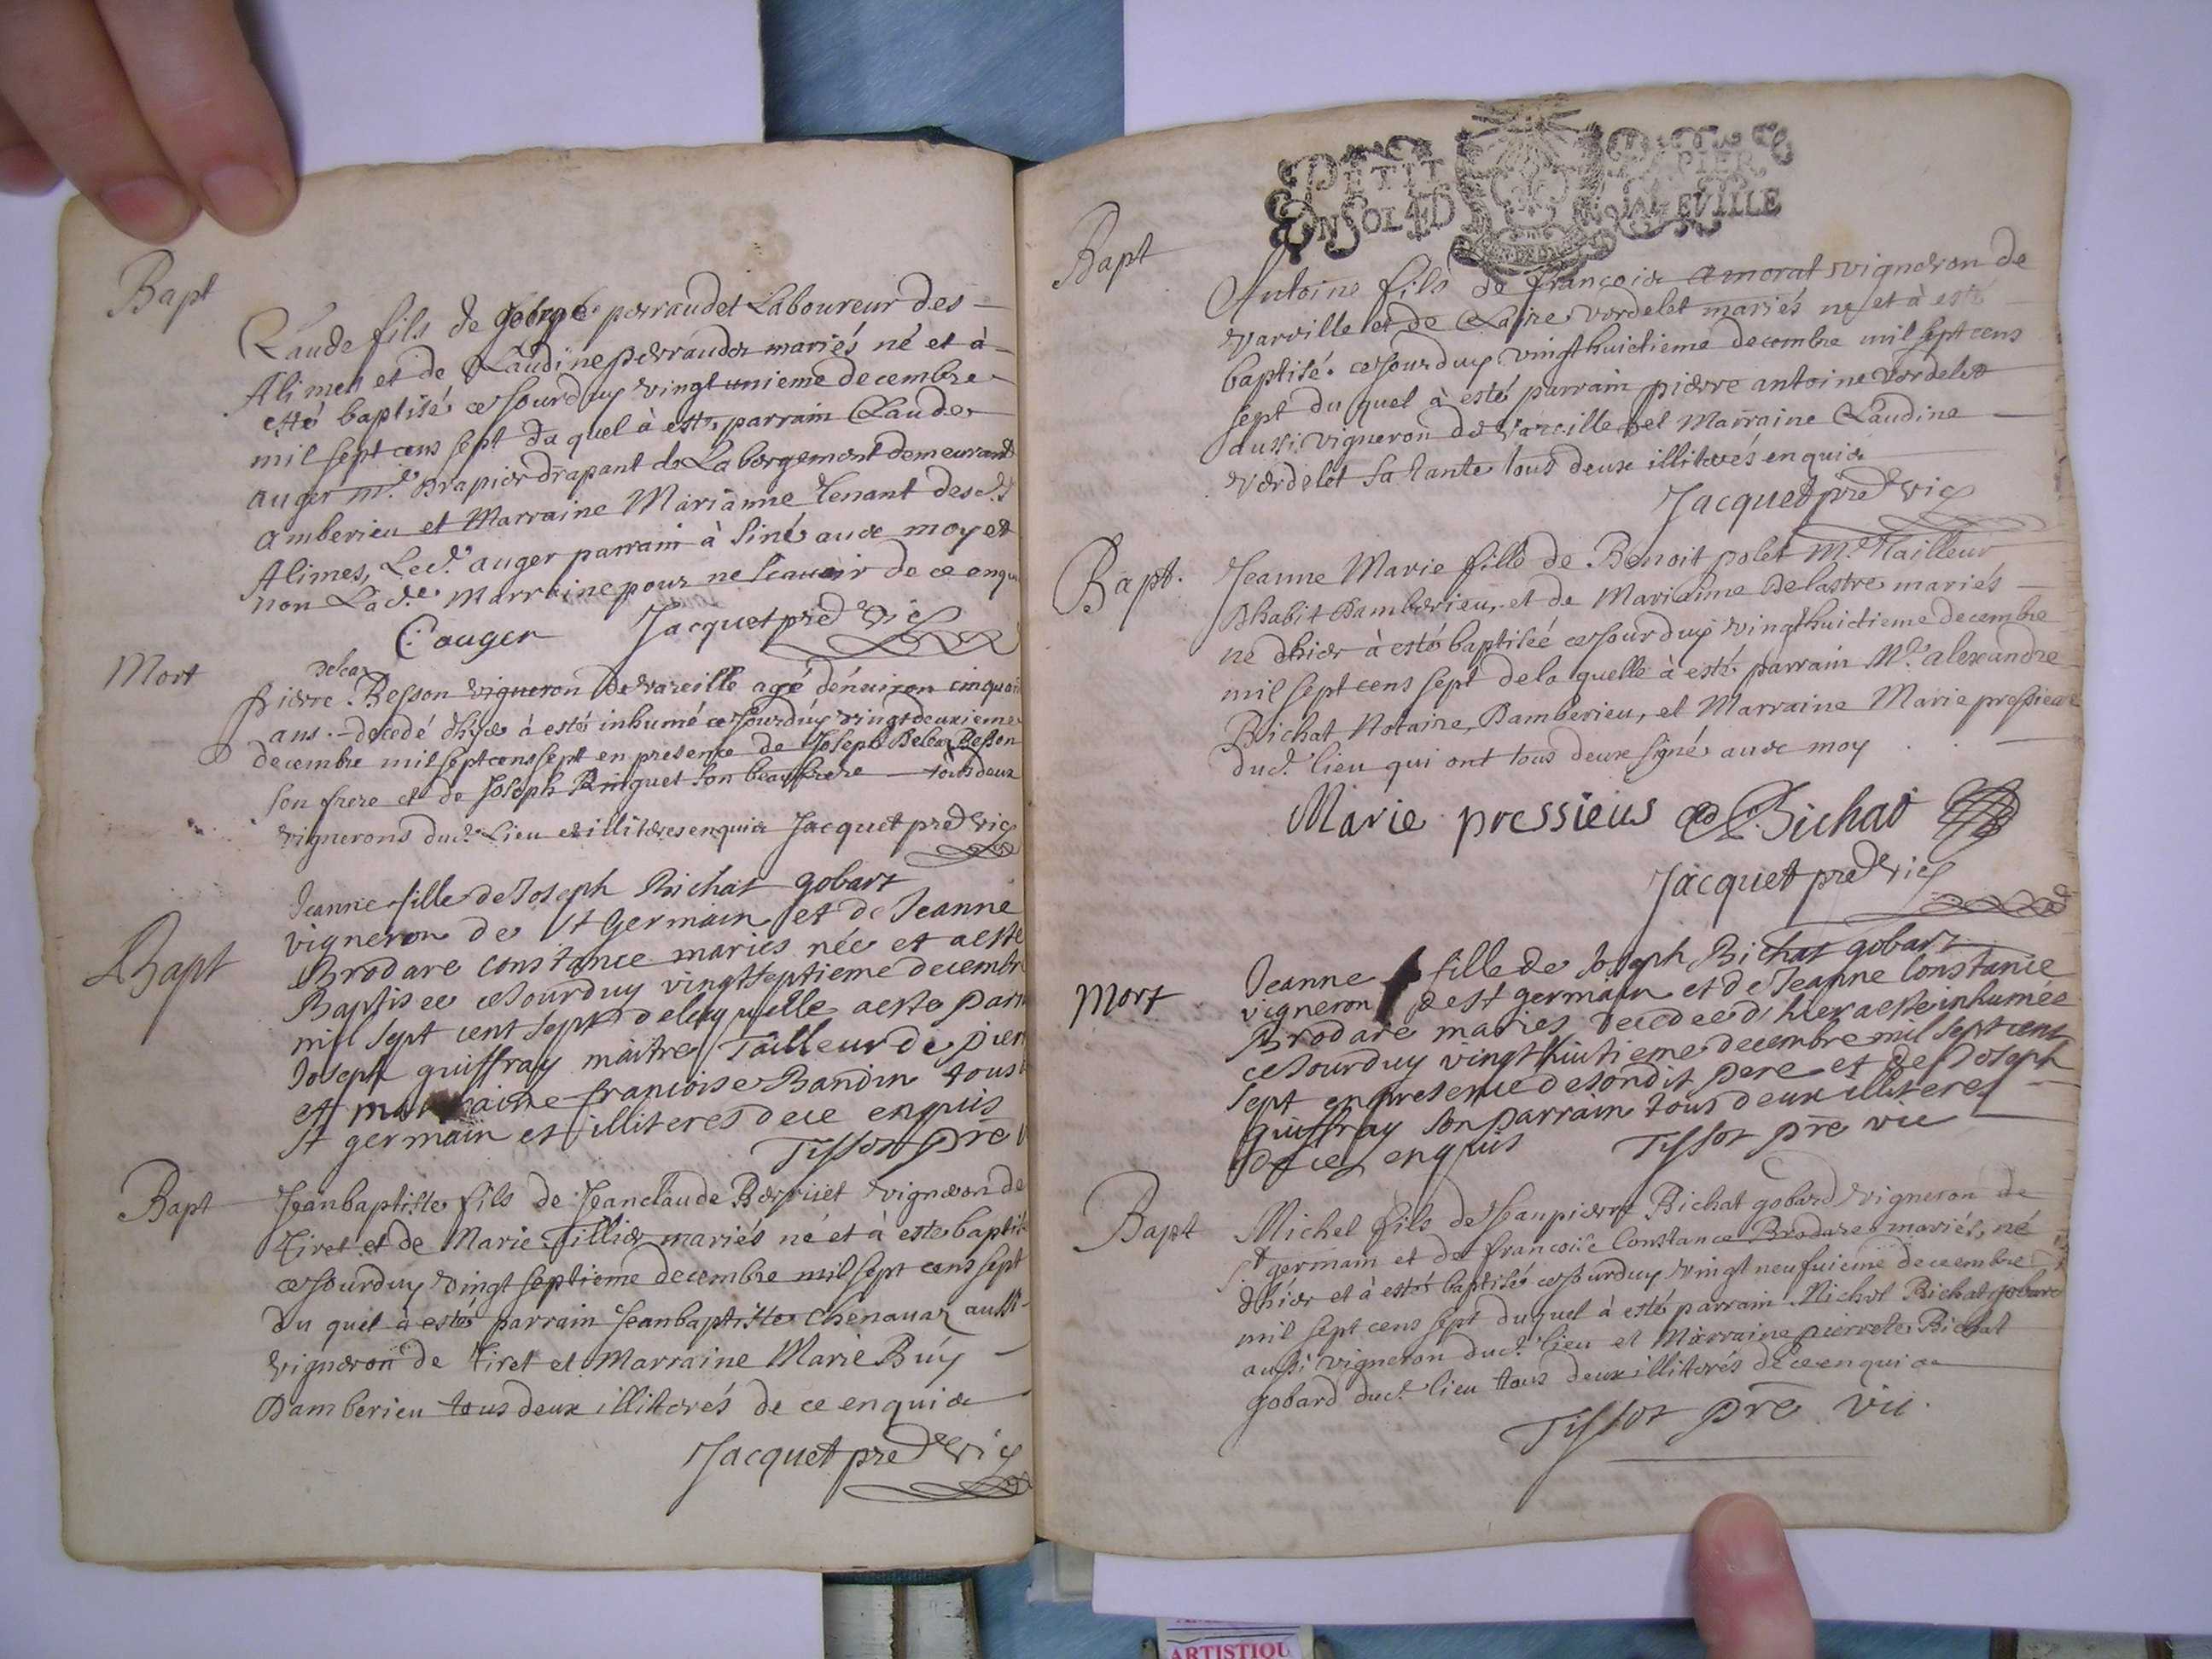 Bapt
Claude fils de George perraudet Laboureur des
Alimes et de Claudine perrauder mariés né et à
esté baptisé cejourduy vingt unieme decembre
mil sept cens sept du quel à esté parrain Claude
auger me. Drapier drapant de Labergement demeurant
amberieu et Marraine Marianne Tenant desd.
Alimes, Led. auger parrain à siné avec moy et
non Lad.e Marraine pour ne scavoir de ce enqu
C: auger Jacquet pred vic
Mort
Beleaz
pierre Besson vigneron de vareille agé dénviron cinquan
ans decedé dhyer à esté inhumé cejourdúy vingtdeuxieme
decembre mil sept cens sept en presence de Joseph Beleaz Besson
son frere et de Joseph Ringuet son beaufrere tous deux
vignerons dud. Lieu et illiteres enquis Jacquet pred vic
Bapt
Jeanne fille de Joseph Bichat gobart
vigneron de St Germain et de Jeanne
Brodare constance mariés née et aesté
Baptisee cejourduy vingtseptieme decembr
mil sept cent sept delaquelle aesté parr
Joseph guiffray maitre Tailleur de pier
et marraine francoise Bandin tous
st germain et illiteres dece enquis
Tissot pre v
Bapt
Jeanbaptiste fils de Jeanclaude Berruet vigneron de
Tiret et de Marie Tillier mariés né et à esté baptis
cejourduy vingt septieme decembre mil sept cens sept
du quel à esté parrain Jeanbaptiste chenavaz aussi
vigneron de Tiret et Marraine Marie Búy
Damberieu tous deux illitterés de ce enquis
Jacquet pred vic
PETIT PAPIER
UN SOL 4 D LA FEUILLE
Bapt
Antoine fils de francois amorat vigneron de
varville et de Claire verdelet mariés né et à esté
baptisé cejourduy vingthuictieme decembre mil sept cens
sept du quel à esté parrain pierre antoine verdelet
aussi vigneron de Vareille et Marraine Claudine
verdelet sa tante tous deux illiterés enquis
Jacquet pred vic
Bapt.
Jeanne Marie fille de Benoit polet Me. Tailleur
Dhabit Damberieu, et de Marianne Delastre mariés
né dhier à esté baptiséé cejourduy vingthuictieme decembre
mil sept cens sept dela quelle à esté parrain Me. alexandre
Bichat Notaire Damberieu, et Marraine Marie pressieux
dud. lieu qui ont tous deux signé avec moy
Marie pressieus Bichat
Jacquet pred vic
Mort
Jeanne fille de Joseph Bichat gobart
vigneron de st germain et de Jeanne Constance
Brodare mariés decedee dhier aeste inhumée
cejourduy vingthuitieme decembre mil sept cent
sept en presence desondit pere et de Joseph
guiffray son parrain tous deux illiteres
de ce enquis Tissot pre vic
Bapt
Michel fils de Jeanpierre Bichat gobard vigneron de
st germain et de francoise Constance Brodare mariés, né
dhier et à esté baptisé cejourduy vingt neufuieme decembre
mil sept cens sept duquel à esté parrain Michel Bichat gobard
aussi vigneron dud. lieu et Marraine pierrete Bichat
gobard dud. lieu tous deux illiterés de ce enquis
Tissot pre vic
ARTISTIQU